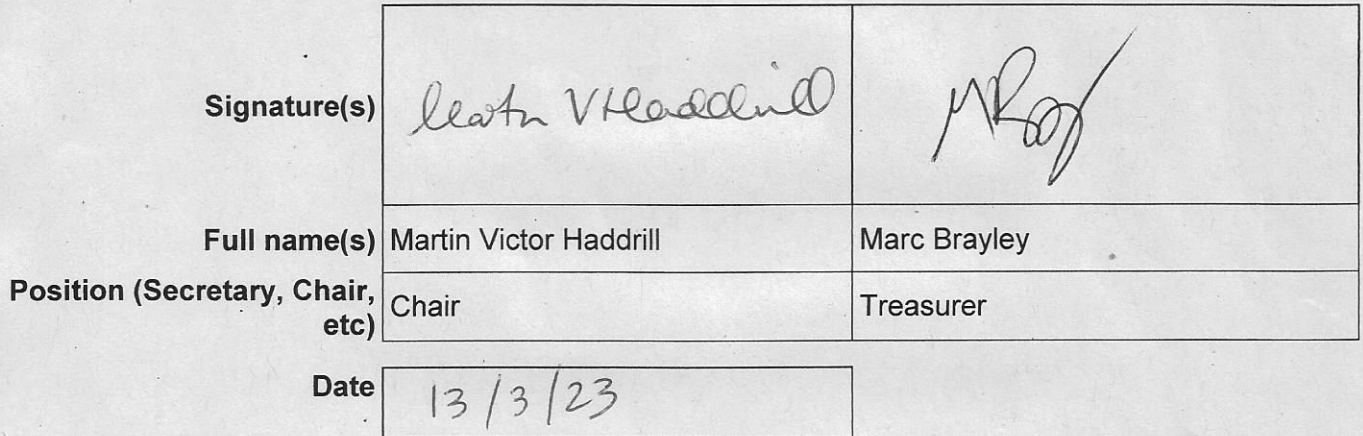 Signature(s) Martin V Haddrill
Full name(s) Martin Victor Haddrill Marc Brayley
Position (Secretary, Chair,
etc) Chair Treasurer
Date 13/3/23